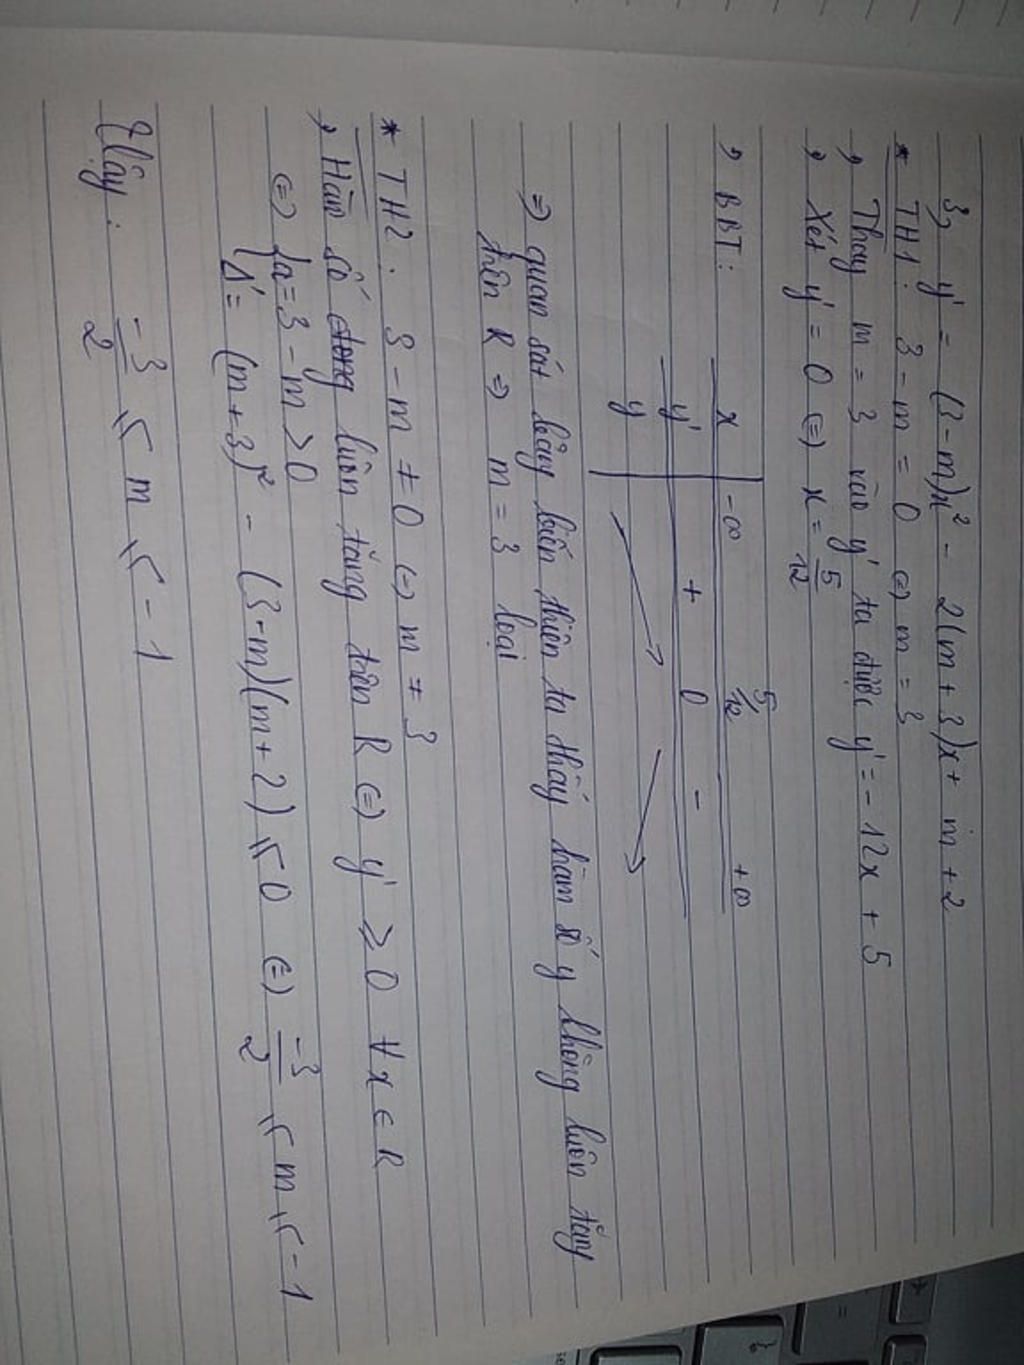 3, y' = (3-m)x² - 2(m+3)x + m+2
* TH1: 3-m = 0 (=) m = 3
, Thay m = 3 vào y' ta được y' = -12x + 5
, Xét y' = 0 (=) x = 5/12
, BBT:
x -∞ 5/12 +∞
y' + 0 -
y
=> quan sát bảng biến thiên ta thấy hàm số y không luôn tăng
trên R => m = 3 loại
* TH2: 3-m ≠ 0 (=) m ≠ 3
, Hàm số luôn tăng trên R (=) y' ≥ 0 ∀x ∈ R
(=) { a = 3-m > 0
Δ' = (m+3)² - (3-m)(m+2) ≤ 0 (=) -3/2 ≤ m ≤ -1
Vậy: -3/2 ≤ m ≤ -1